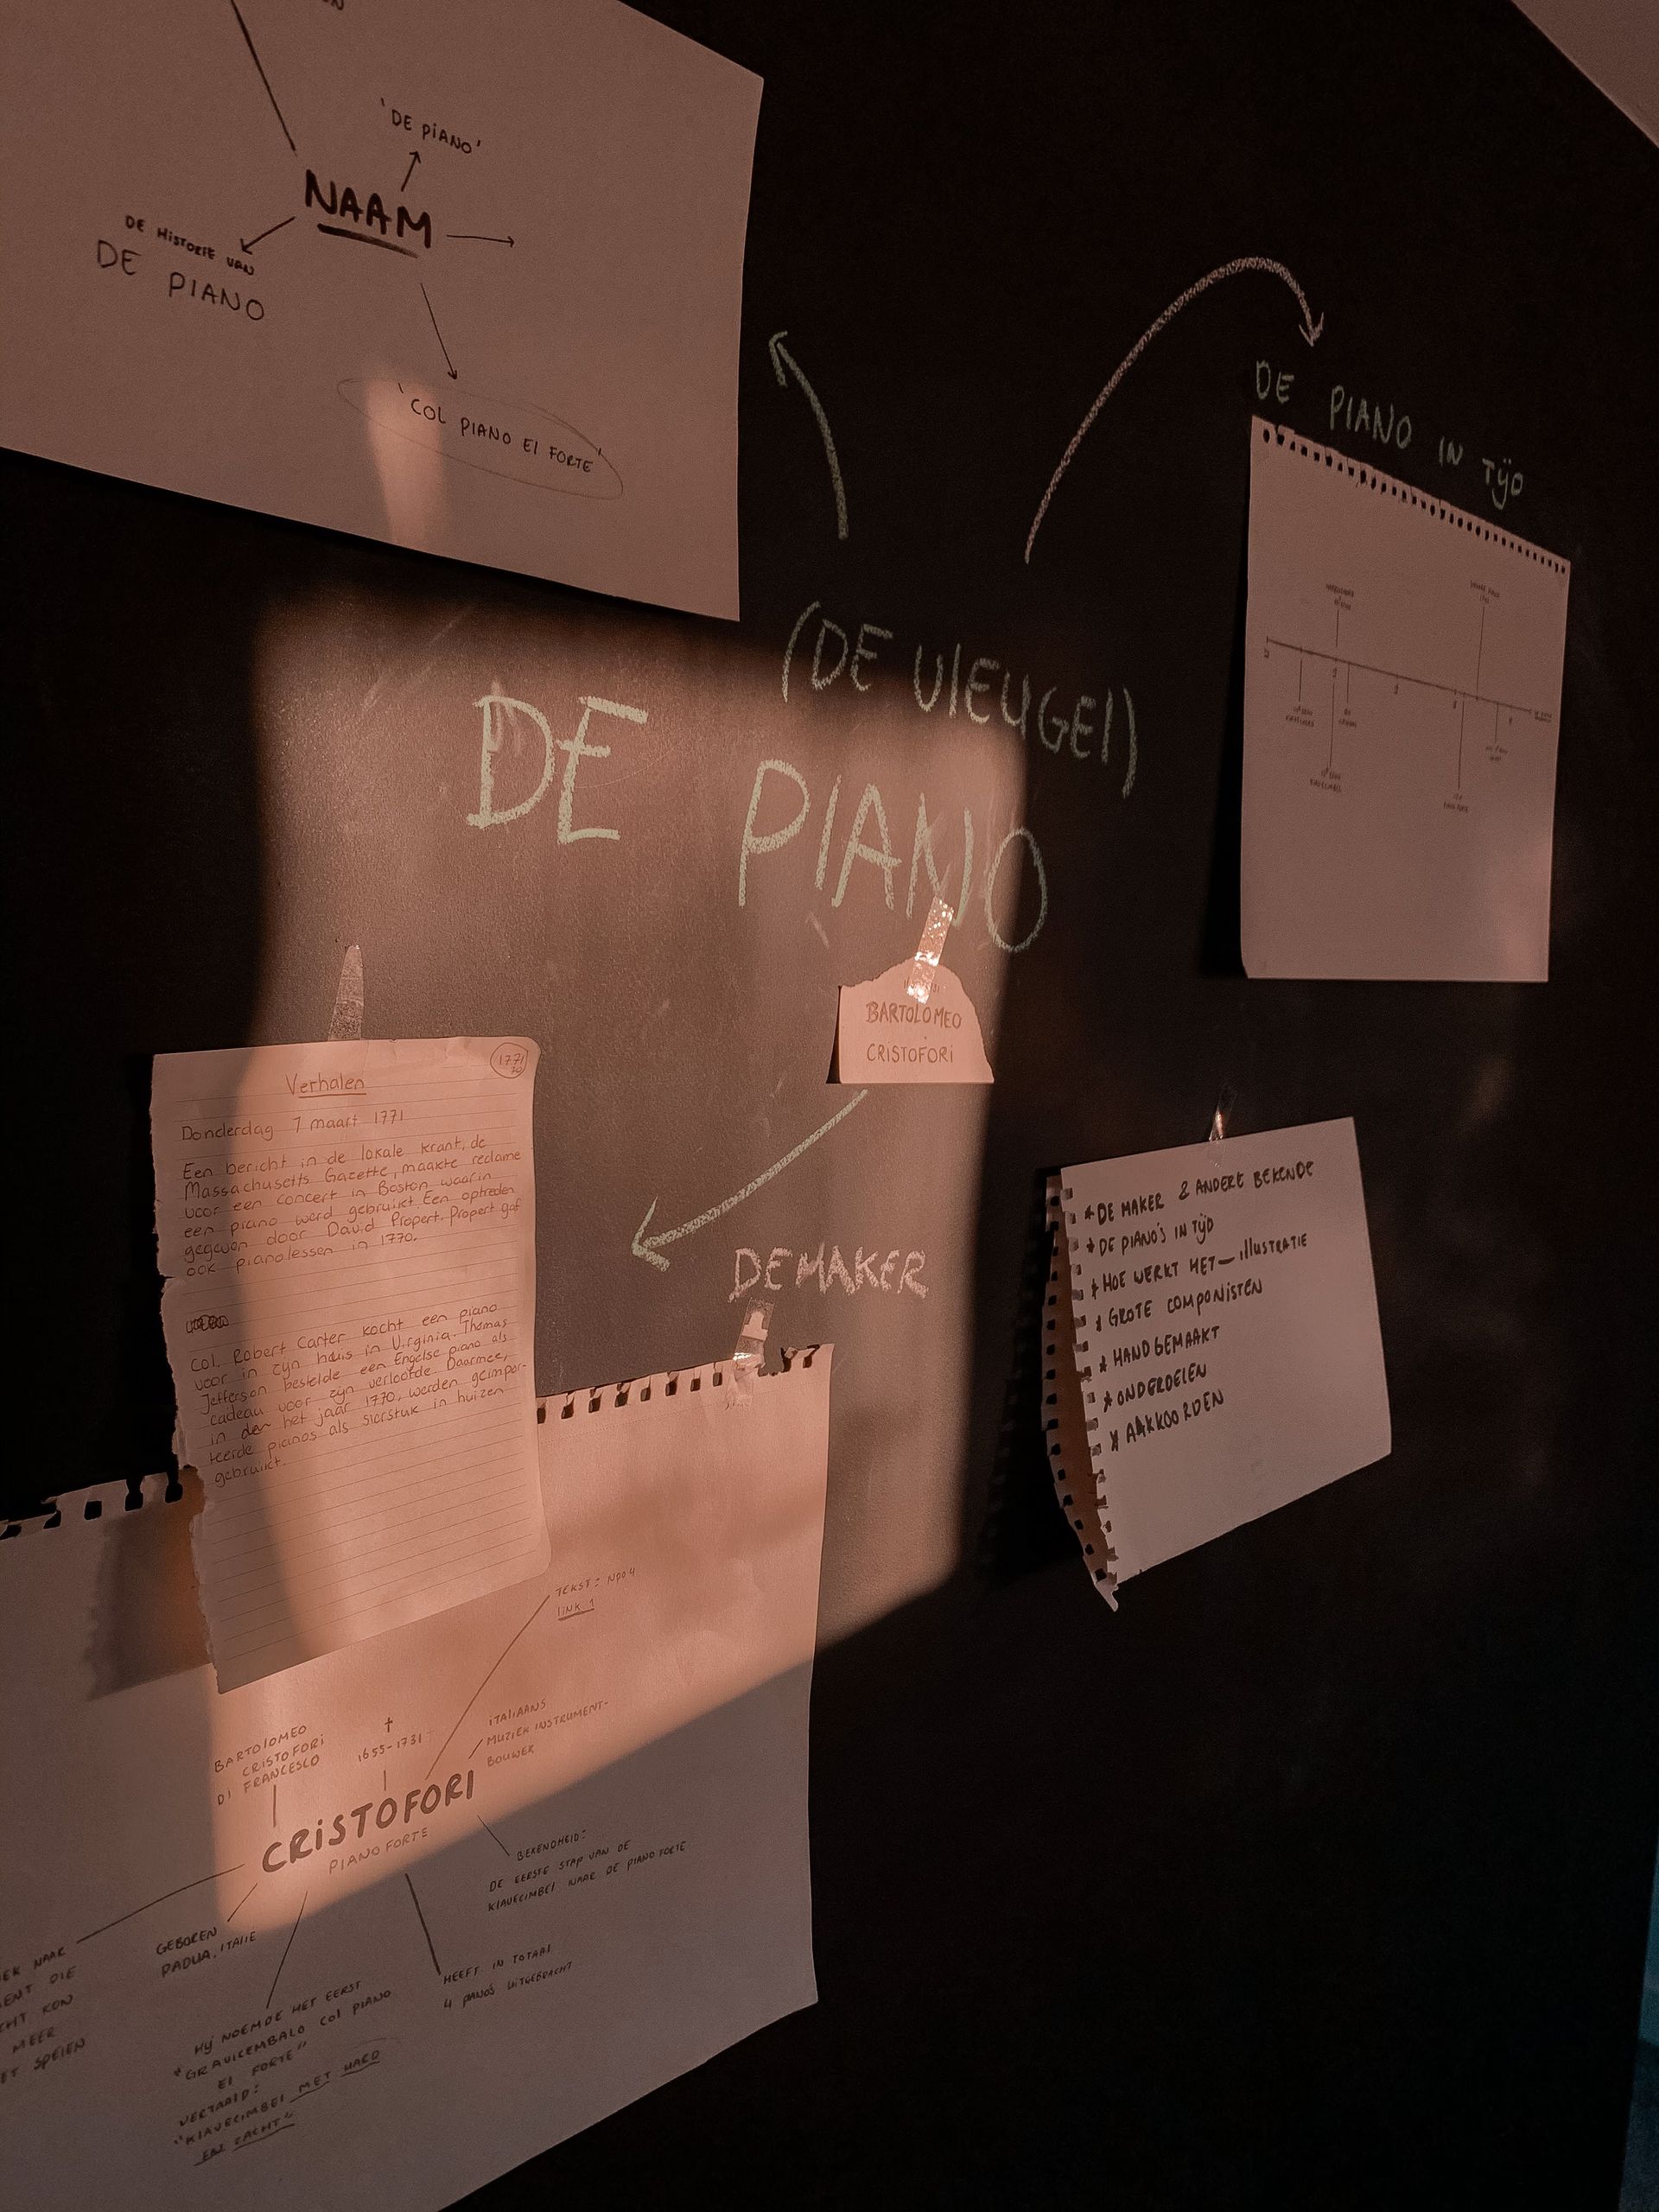 'DE PIANO'
NAAM
DE HISTORIE VAN
DE PIANO
'COL PIANO EI FORTE'
DE PIANO IN TIJD
(DE VLEUGEL)
DE PIANO
BARTOLOMEO
CRISTOFORI
1771/
70
Verhalen
Donderdag 7 maart 1771
Een bericht in de lokale krant, de
Massachusetts Gazette, maakte reclame
voor een concert in Boston waarin
een piano werd gebruikt. Een optreden
gegeven door David Propert. Propert gaf
ook pianolessen in 1770.
Col. Robert Carter kocht een piano
voor in zijn huis in Virginia. Thomas
Jefferson bestelde een Engelse piano als
cadeau voor zijn verloofde. Daarmee,
in den het jaar 1770, werden geimpor-
teerde pianos als sierstuk in huizen
gebruikt.
* DE MAKER & ANDERE BEKENDE
* DE PIANO'S IN TIJD
* HOE WERKT HET — ILLUSTRATIE
* GROTE COMPONISTEN
* HANDGEMAAKT
* ONDERDELEN
* AKKOORDEN
DE MAKER
TEKST: NPO4
LINK 1
BARTOLOMEO
CRISTOFORI
DI FRANCESCO
†
1655-1731
ITALIAANS
MUZIEK INSTRUMENT-
BOUWER
CRISTOFORI
PIANO FORTE
BEKENDHEID:
DE EERSTE STAP VAN DE
KLAVECIMBEL NAAR DE PIANO FORTE
GEBOREN
PADUA, ITALIE
HEEFT IN TOTAAL
4 PANO'S UITGEBRACHT
HIJ NOEMDE HET EERST
"GRAVICEMBALO COL PIANO
EI FORTE"
VERTAALD:
"KLAVECIMBEL MET HARD
EN ZACHT"
EK NAAR
ENT DIE
CHT KON
MEER
ET SPELEN